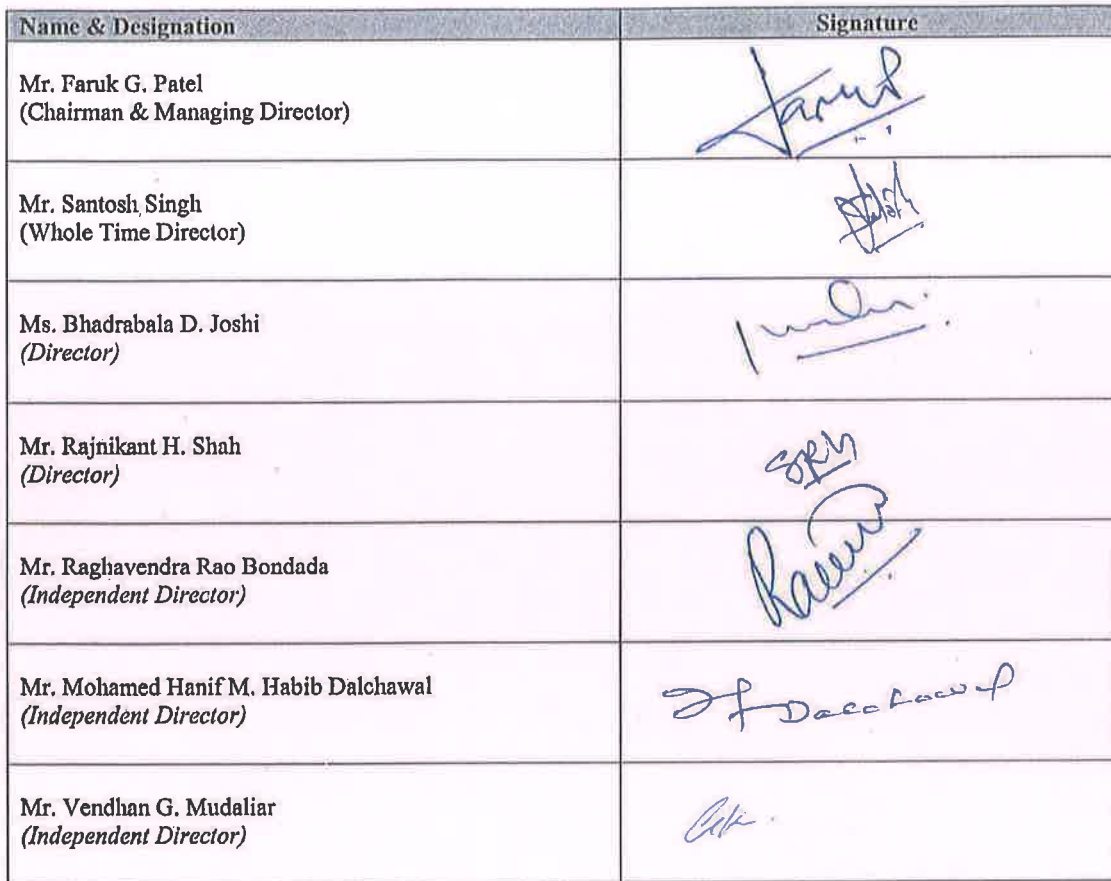 Name & Designation Signature
Mr. Faruk G. Patel
(Chairman & Managing Director)
Mr. Santosh Singh
(Whole Time Director)
Ms. Bhadrabala D. Joshi
(Director)
Mr. Rajnikant H. Shah
(Director)
SRH
Mr. Raghavendra Rao Bondada
(Independent Director)
Mr. Mohamed Hanif M. Habib Dalchawal
(Independent Director)
Dalchawal
Mr. Vendhan G. Mudaliar
(Independent Director)